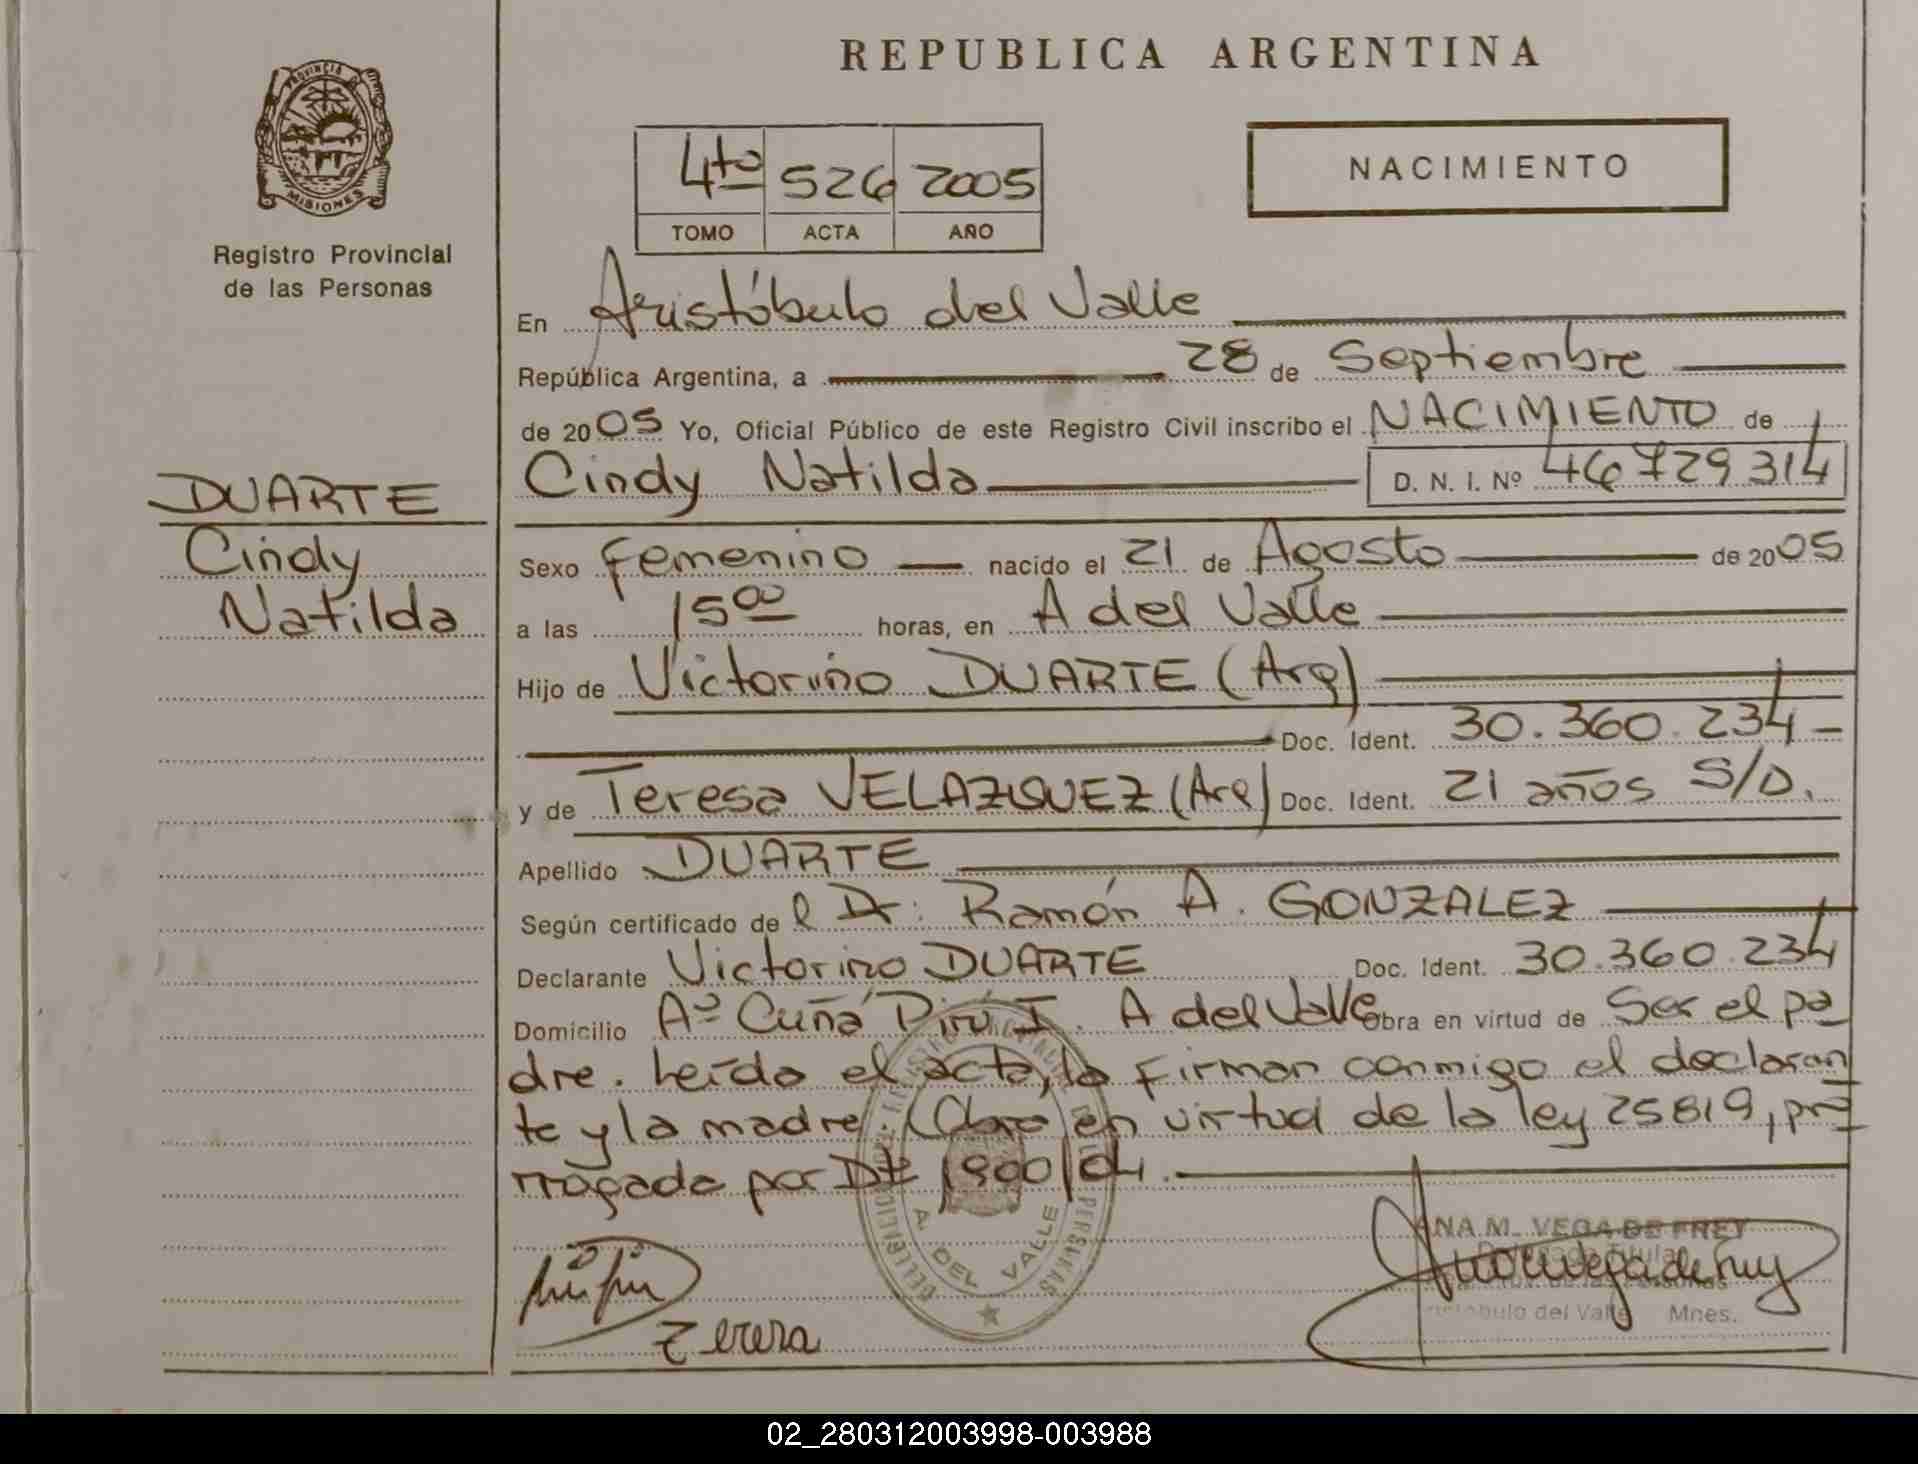 PROVINCIA DE
MISIONES
Registro Provincial
de las Personas
DUARTE
Cindy
Natilda
REPUBLICA ARGENTINA
4to 526 2005
TOMO ACTA AÑO
NACIMIENTO
En Aristóbulo del Valle
República Argentina, a 28 de Septiembre
de 2005 Yo, Oficial Público de este Registro Civil inscribo el NACIMIENTO de
Cindy Natilda D. N. I. Nº 46729314
Sexo femenino nacido el 21 de Agosto de 2005
a las 15 00 horas, en A del Valle
Hijo de Victorino DUARTE (Arg)
Doc. Ident. 30.360.234
y de Teresa VELAZQUEZ (Arg) Doc. Ident. 21 años S/D.
Apellido DUARTE
Según certificado de l Dr: Ramón A. GONZALEZ
Declarante Victorino DUARTE Doc. Ident. 30.360.234
Domicilio Aº Cuñá Pirú I. A del Valle Obra en virtud de Ser el pa
dre. Leída el acta, la firman conmigo el declaran
te y la madre (Obro en virtud de la ley 25819, pro
rrogada por Dto 1900/04.
A. DEL VALLE
ANA M. VEGA DE FREY
Delegada Titular
de las Personas
Aristóbulo del Valle Mnes.
02_280312003998-003988